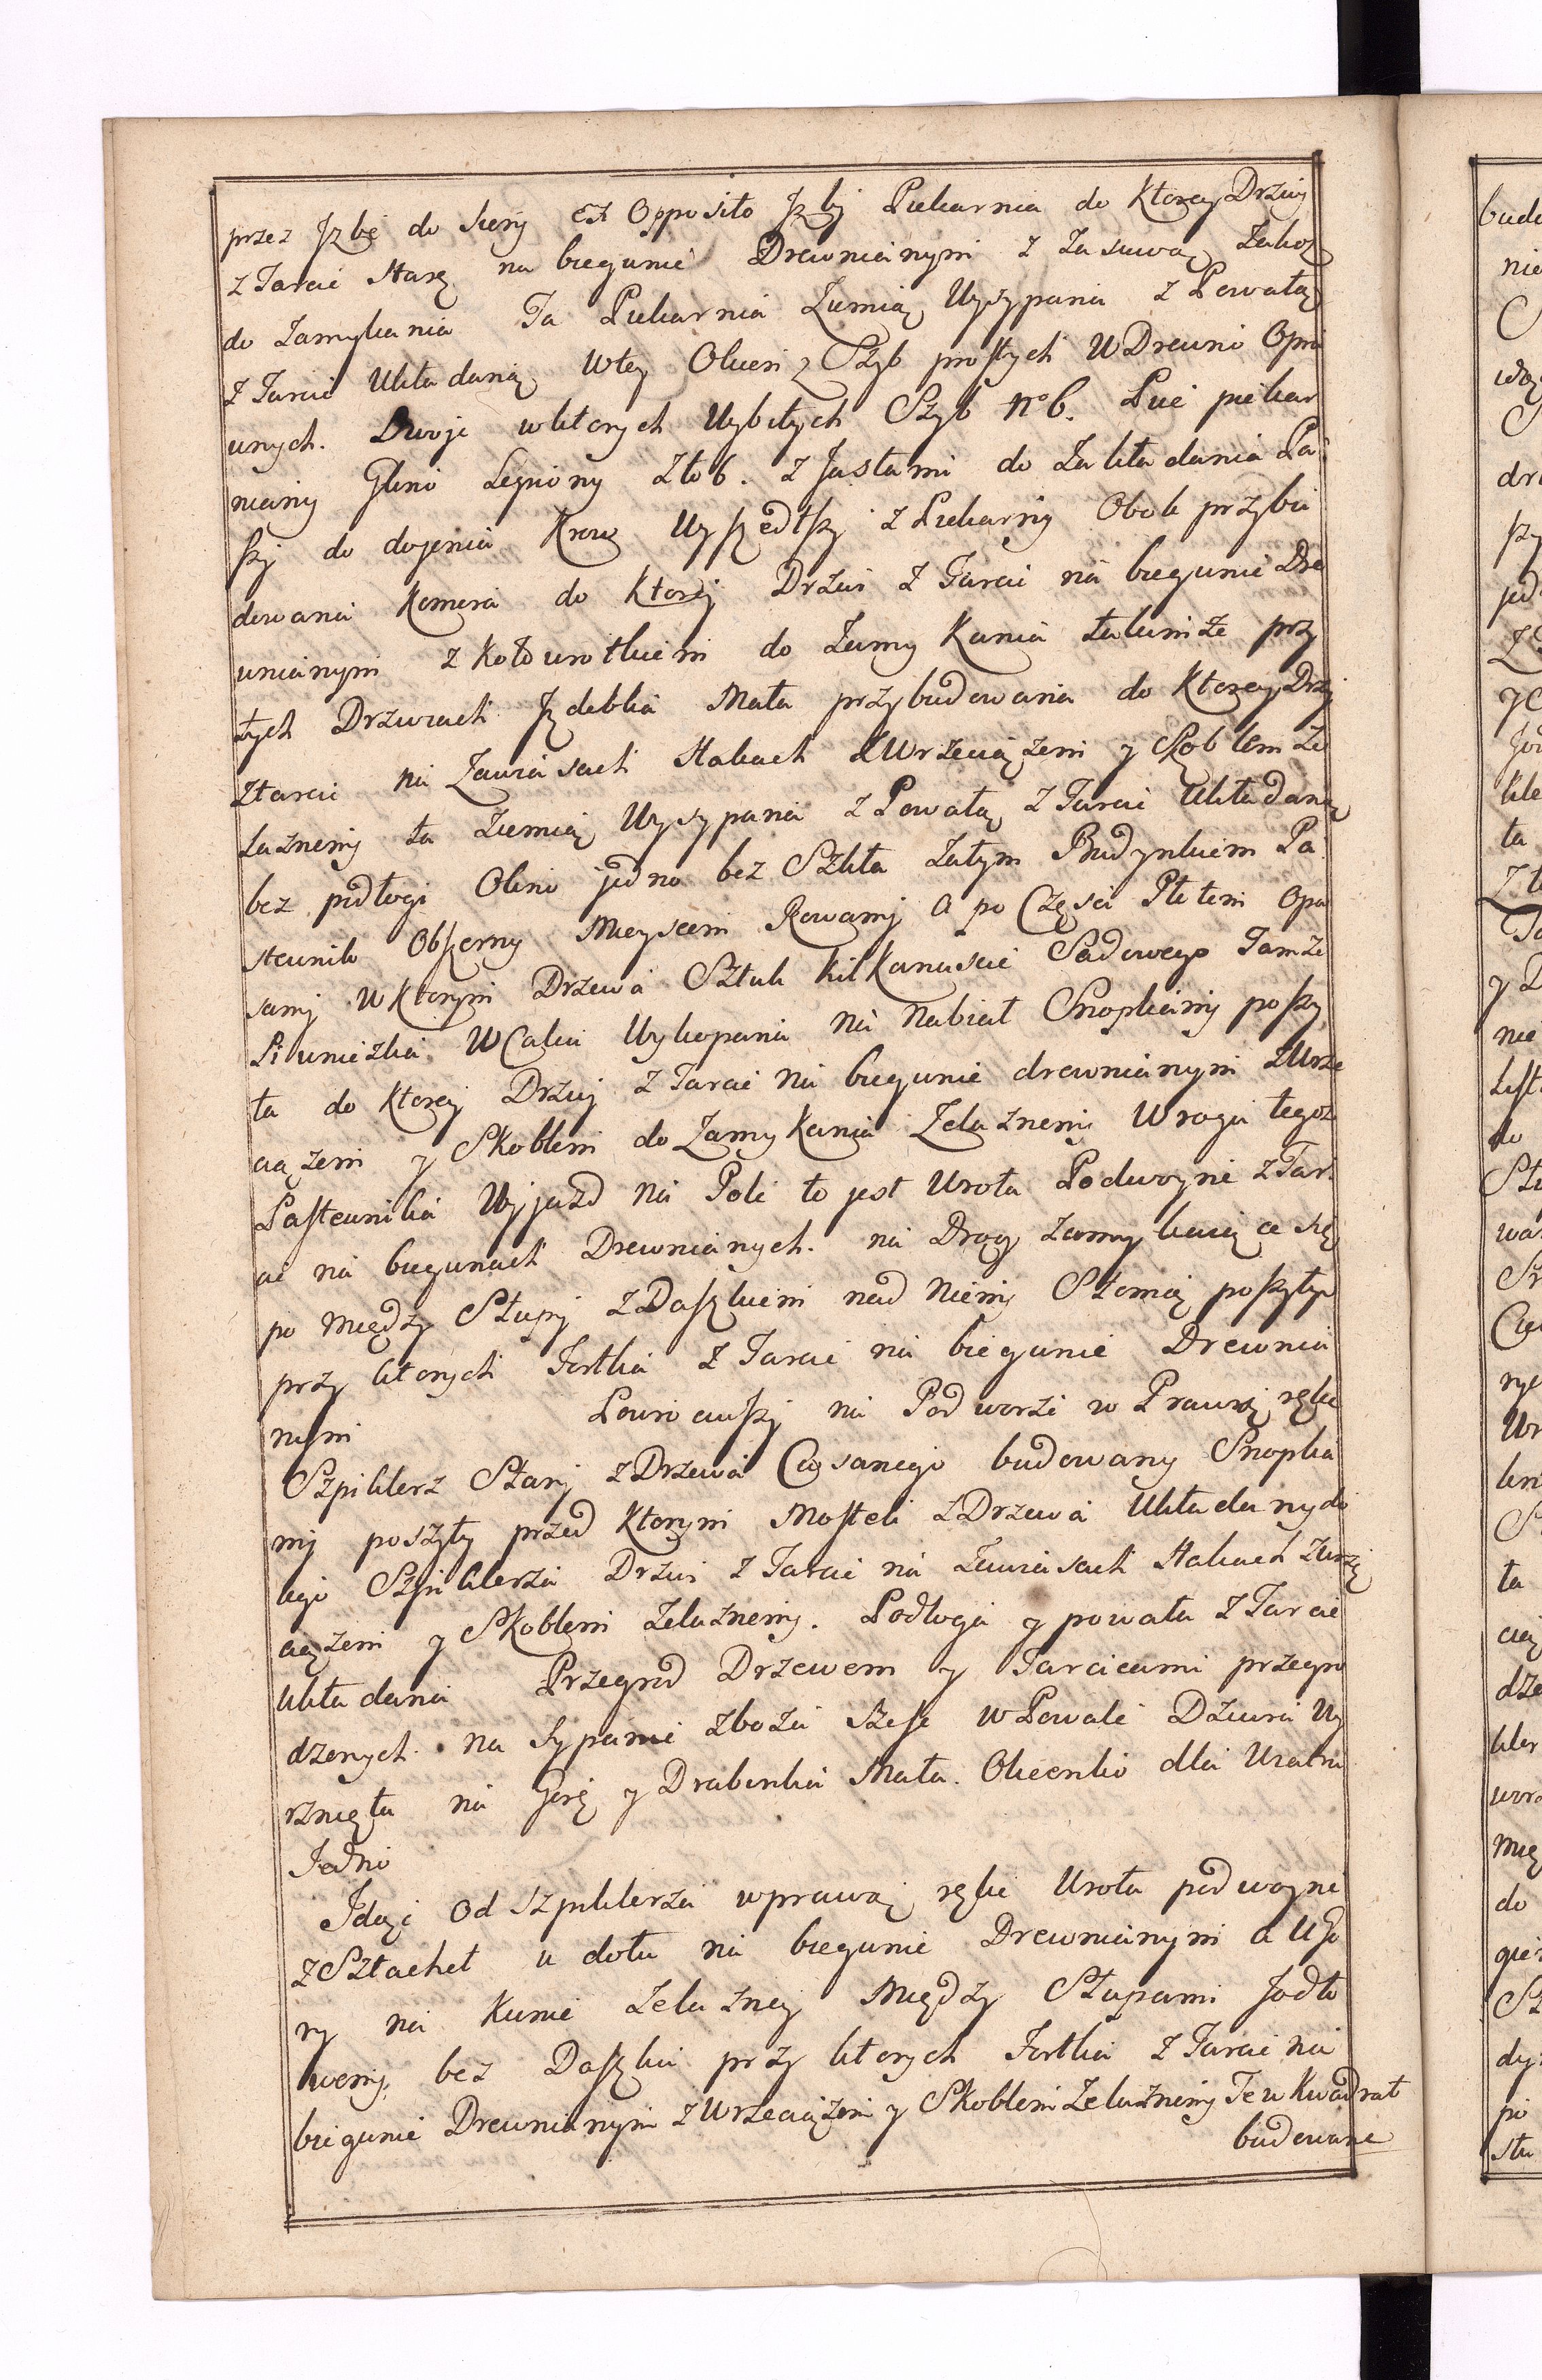 przez Jzbę do sieny Ex Opposito Jzby Piekarnia do Ktorey Drzwi
z Tarcic Starę na biegunie Drewnianym z Zasuwą Takoż
do Zamykania Ta Piekarnia Ziemią Wysypana z Powałą
z Tarcic Układaną w tey Okien z Szyb prostych w Drewno Opra
wnych. Dwoje w ktorych Wybitych Szyb No 6. Piec piekar
niany Gliną Lepiony Złob. z Jasłami do Zakładania Pa
szy do dojenia Krow Wyszedłszy z Piekarny Obok przybu
dowana Komora do Ktorey Drzwi z Tarcic na biegunie Dre
wnianym z Kołowrotkiem do Zamykania takimże przy
tych Drzwiach Jzdebka Mała przybudowana do Ktorey Drzwi
z tarcic na Zawiasach Hakach z Wrzeciążem y Skoblem Że
laznemy ta Ziemią Wysypana z Powałą z Tarcic Układaną
bez podłogi Okno jedno bez Szkła Zatym Budynkiem Pa
stewnik Obszerny Mieyscem Rowamy a po Części Płotem Opa
sany w Ktorym Drzewa Sztuk Kilkanascie Sadowego Tamże
Piwniczka W Całcu Wykopana na Nabiał Snopkamy poszy
ta do Ktorey Drzwy z Tarcic na biegunie drewnianym z Wrze
ciążem y Skoblem do Zamykania Żelaznemy W rogu tegoż
Pastewnika Wyjazd na Pole to jest Wrota Podwoyne z Tar
cic na biegunach Drewnianych. na Drąg Zamykaiące się
po między Słupy z Daszkiem nad niemy Słomą poszytym
przy ktorych Fortka z Tarcic na biegunie Drewnia
nym Powrociwszy na Podworze w Prawey ręku
Szpiklerz Stary z Drzewa Ciosanego budowany Snopka
my poszyty przed Ktorym Mostek z Drzewa Układany do
tego Szpiklerza Drzwi z Tarcic na Zawiasach Hakach z Wrze
ciążem y Skoblem Żelaznemy. Podłoga y powała z Tarcic
Układana Przegrod Drzewem y Tarcicami przegro
dzonych na Sypanie Zboża Sześc w Powale Dziura Wy
rznięta na Gorę y Drabinka Mała. Okienko dla Wiatru
Jedno
Jdąc od Szpiklerza w prawą ręku Wrota podwoyne
z Sztachet u dołu na biegunie Drewnianym a u Go
ry na Kunie Żelazney Między Słupami Jodło
wemy bez Daszku przy ktorych Fortka z Tarcic na
biegunie Drewnianym z Wrzeciążem y Skoblem Żelaznemy Te w Kwadrat
budowane